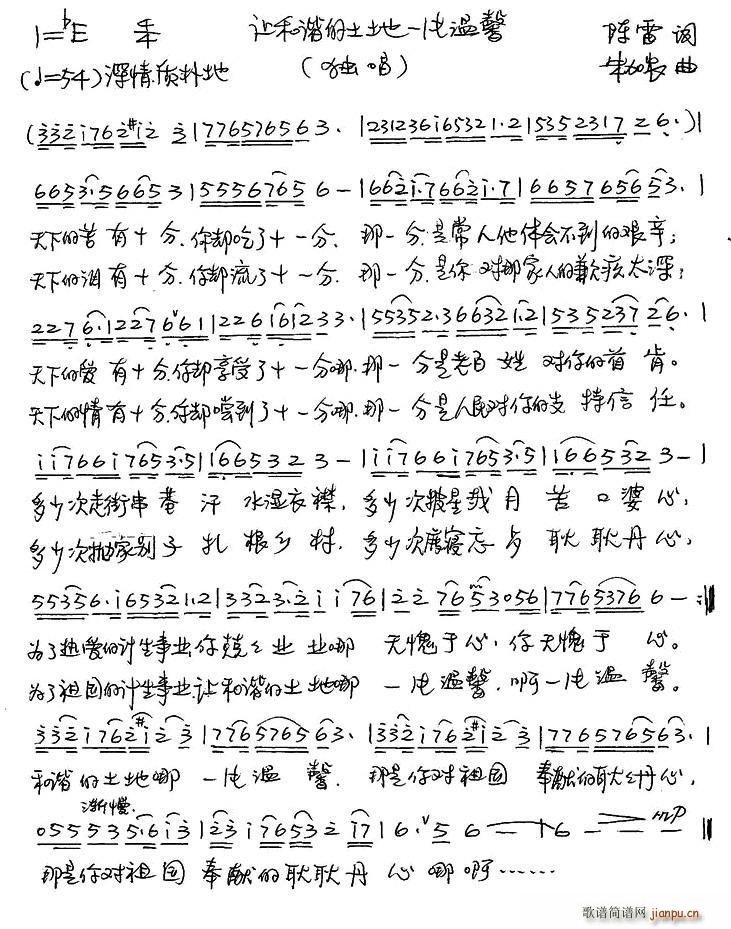 1=♭E 4/4 让和谐的土地一片温馨 陈雷 词
(♩=54)深情质朴地 (独唱) 曲
(3 3 2 i 7 6 2 #i 2 3 | 7 7 6 5 7 6 5 6 3. | 1 2 3 1 2 3 6 i 6 5 3 2 1·2 | 5 3 5 2 3 1 7 2 6·)|
6 6 5 3·5 6 6 5 3 | 5 5 5 6 7 6 5 6 — | 6 6 2 i·7 6 6 2 i·7 | 6 6 5 7 6 5 6 5 3. |
天下的苦有十分,你却吃了十一分、那一分是常人他体会不到的艰辛;
天下的泪有十分,你却流了十一分、那一分是你对那家人的歉疚太深;
2 2 7 6·1 2 2 7 6 ∨ 6 1 | 2 2 6 1 6 1 2 3 3. | 5 5 3 5 2·3 6 6 3 2 1·2 | 5 3 5 2 3 7 2 6·|
天下的爱有十分,你却享受了十一分哪,那一分是老百姓对你的首肯。
天下的情有十分,你却嚐到了十一分哪,那一分是人民对你的支持信任。
i i 7 6 6 i 7 6 5 3·5 | i 6 6 5 3 2 3 — | i i 7 6 6 i 7 6 5 3·5 | i 6 6 5 3 2 3 — |
多少次走街串巷汗水湿衣襟,多少次披星戴月苦口婆心,
多少次抛家别子扎根乡村,多少次废寝忘食耿耿丹心,
5 5 3 5 6·i 6 5 3 2 1·2 | 3 3 2 3·2 i i 7 6 | 2 2 7 6 5 3 0 5 6 | 7 7 6 5 3 7 6 6 — :‖
为了热爱的计生事业,你兢兢业业哪 无愧于心,你无愧于心。
为了祖国的计生事业,让和谐的土地哪 一片温馨,啊一片温馨。
3 3 2 i 7 6 2 #i 2 3 | 7 7 6 5 7 6 5 6 3. | 3 3 2 i 7 6 2 #i 2 3 | 7 7 6 5 7 6 5 6 3. |
和谐的土地哪 一片温馨,那是你对祖国奉献的耿耿丹心,
渐慢.
0 5 5 5 3 5·6 i 3 | 2 3 i 7 6 5 3 2 i 7 | 6· ∨ 5 6 — | 6 — — — mp ‖
那是你对祖国奉献的耿耿丹心哪啊……
歌谱简谱网 jianpu.cn